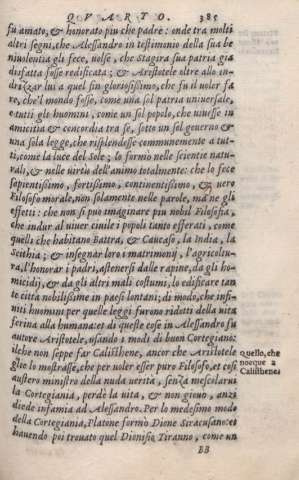 QVARTO. 385
fu amato, & honorato piu che padre: onde tra molti
altri segni, che Alessandro in testimonio della sua be
niuolentia gli fece, uolse, che Stagira sua patria gia
disfatta fosse redificata; & Aristotele oltre allo in-
drizzar lui a quel fin gloriosissimo, che fu il uoler fa
re, che'l mondo fosse, come una sol patria uniuersale,
e tutti gli huomini, come un sol popolo, che uiuesse in
amicitia & concordia tra se, sotto un sol gouerno &
una sola legge, che risplendesse communemente a tut-
ti, come la luce del Sole; lo formò nelle scientie natu-
rali, & nelle uirtù dell'animo totalmente: che lo fece
sapientissimo, fortissimo, continentissimo, & uero
Filosofo morale, non solamente nelle parole, ma ne gli
effetti: che non si può imaginare piu nobil Filosofia,
che indur al uiuer ciuile i popoli tanto efferati, come
quelli che habitano Battra, & Caucaso, la India, la
Scithia; & insegnar loro i matrimonij, l'agricoltu-
ra, l'honorar i padri, astenersi dalle rapine, da gli ho-
micidij, & da gli altri mali costumi, lo edificare tan
te città nobilissime in paesi lontani; di modo, che infi-
niti huomini per quelle leggi furono ridotti della uita
ferina alla humana: et di queste cose in Alessandro fu
autore Aristotele, usando i modi di buon Cortegiano:
ilche non seppe far Calisthene, ancor che Aristotele
glie lo mostrasse, che per uoler esser puro Filosofo, et cosi
austero ministro della nuda uerità, senza mescolarui
la Cortegiania, perdè la uita, & non giouò, anzi
diede infamia ad Alessandro. Per lo medesimo modo
della Cortegiania, Platone formò Dione Siracusano: et
hauendo poi trouato quel Dionisio Tiranno, come un
BB
Quello, che
nocque a
Calisthene